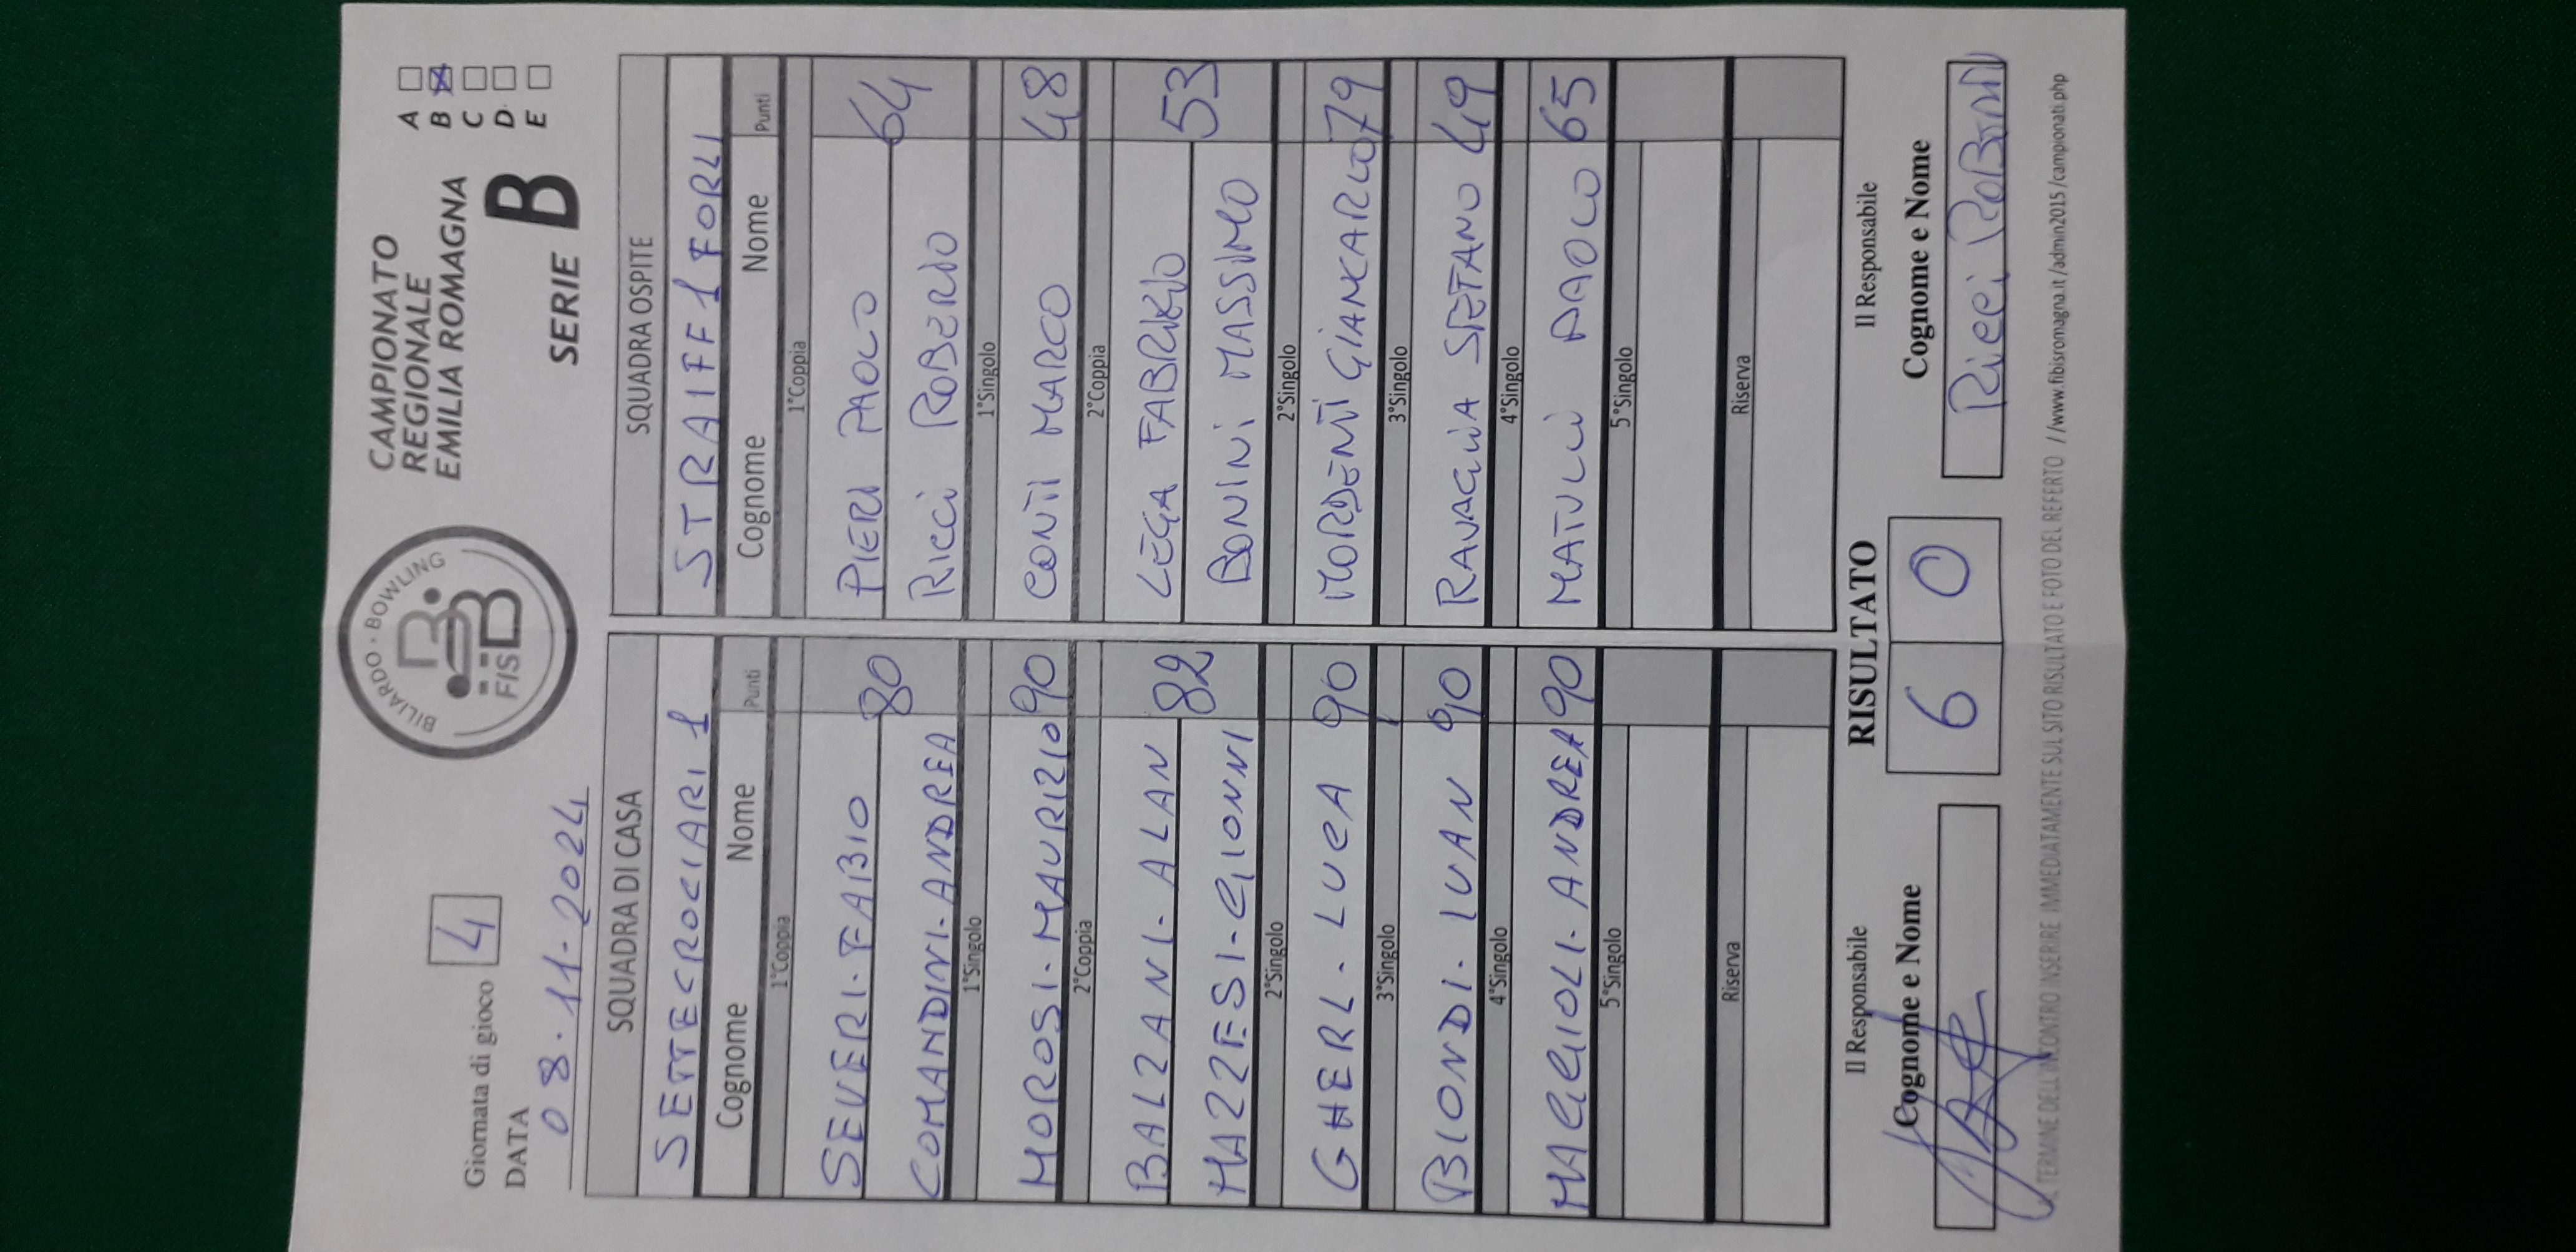 Giornata di gioco 4
DATA
08.11.2024
BILIARDO · BOWLING
FISBB
CAMPIONATO
REGIONALE
EMILIA ROMAGNA
SERIE B
A
B X
C
D
E
SQUADRA DI CASA
SETTECROCIARI 1
Cognome Nome Punti
1°Coppia
SEVERI. FABIO 80
COMANDINI. ANDREA
1°Singolo
MOROSI. MAURIZIO 90
2°Coppia
BALZANI. ALAN 82
MAZZESI - GIONNI
2°Singolo
GHERL. LUCA 90
3°Singolo
BIONDI. IVAN 90
4°Singolo
MAGGIOLI. ANDREA 90
5°Singolo
Riserva
SQUADRA OSPITE
STRAIFF 1 FORLI
Cognome Nome Punti
1°Coppia
PIERI PAOLO 64
RICCI ROBERTO
1°Singolo
CONTI MARCO 48
2°Coppia
LEGA FABRIZIO 53
BONINI MASSIMO
2°Singolo
MORDENTI GIANCARLO 79
3°Singolo
RAVAGLIA STEFANO 49
4°Singolo
MATULLI PAOLO 65
5°Singolo
Riserva
Il Responsabile RISULTATO Il Responsabile
Cognome e Nome 6 0 Cognome e Nome
Ricci
TERMINE DELL'INCONTRO INSERIRE IMMEDIATAMENTE SUL SITO RISULTATO E FOTO DEL REFERTO //www.fibisromagna.it/admin2015/campionati.php